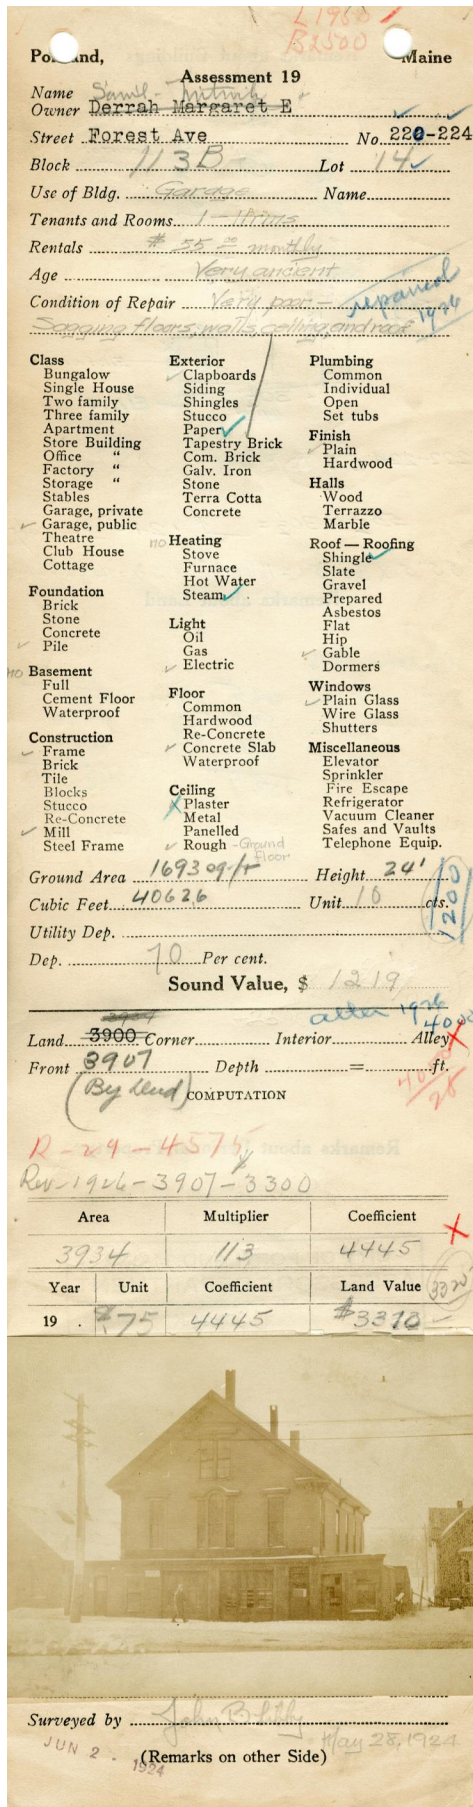 L1950
B2500
Portland, Maine
Assessment 19
Name Saml.
Owner Derrah Margaret E
Street Forest Ave No. 220-224
Block 113B Lot 14
Use of Bldg. Garage Name
Tenants and Rooms 1-
Rentals $55 00 monthly
Age Very ancient
Condition of Repair Very poor - repaired
1926
Sagging floors, walls, ceiling, and roof
Class
Bungalow
Single House
Two family
Three family
Apartment
Store Building
Office "
Factory "
Storage "
Stables
Garage, private
Garage, public
Theatre
Club House
Cottage
Foundation
Brick
Stone
Concrete
Pile
no Basement
Full
Cement Floor
Waterproof
Construction
Frame
Brick
Tile
Blocks
Stucco
Re-Concrete
Mill
Steel Frame
Exterior
Clapboards
Siding
Shingles
Stucco
Paper
Tapestry Brick
Com. Brick
Galv. Iron
Stone
Terra Cotta
Concrete
no Heating
Stove
Furnace
Hot Water
Steam
Light
Oil
Gas
Electric
Floor
Common
Hardwood
Re-Concrete
Concrete Slab
Waterproof
Ceiling
Plaster
Metal
Panelled
Rough - Ground
floor
Plumbing
Common
Individual
Open
Set tubs
Finish
Plain
Hardwood
Halls
Wood
Terrazzo
Marble
Roof — Roofing
Shingle
Slate
Gravel
Prepared
Asbestos
Flat
Hip
Gable
Dormers
Windows
Plain Glass
Wire Glass
Shutters
Miscellaneous
Elevator
Sprinkler
Fire Escape
Refrigerator
Vacuum Cleaner
Safes and Vaults
Telephone Equip.
Ground Area 1693 sq. ft Height 24'
Cubic Feet 40626 Unit 10 cts.
1200
Utility Dep.
Dep. 70 Per cent.
Sound Value, $ 1219
after 1926
4000
Land 3900 Corner Interior Alley
Front 3907 Depth = ft.
(By deed) COMPUTATION
4000
28
R-29-4575
Rev-1926-3907-3300
Area Multiplier Coefficient
3934 113 4445
Year Unit Coefficient Land Value
19 . $.75 4445 $3310
Surveyed by John B. Libby
May 28, 1924
JUN 2 . 1924
(Remarks on other Side)